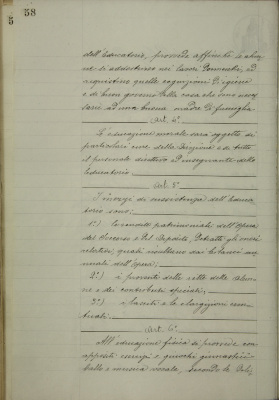 58
5
dell'Educatorio, provvede affinché le alun-
ne si addestrino nei lavori domestici, ed
acquistino quelle cognizioni d'igiene
e di buon governo della casa che sono neces-
sarie ad una buona madre di famiglia.
Art. 4°
L'educazione morale sarà oggetto di
particolari cure della Direzione e di tutto
il personale direttivo ed insegnante dello
Educatorio.
Art. 5°
I mezzi di sussistenza dell'Educa-
torio sono:
1°) le rendite patrimoniali dell'Opera
del Soccorso e del Deposito, detratti gli oneri
relativi, quali risultano dai bilanci an-
nuali dell'opera;
2°) i proventi delle rette delle alun-
ne e dei contributi speciali;
3°) i lasciti e le elargizioni even-
tuali.
Art. 6°
All'educazione fisica si provvede con
appositi esercizi e giuochi ginnastici
dalle e morale, secondo le